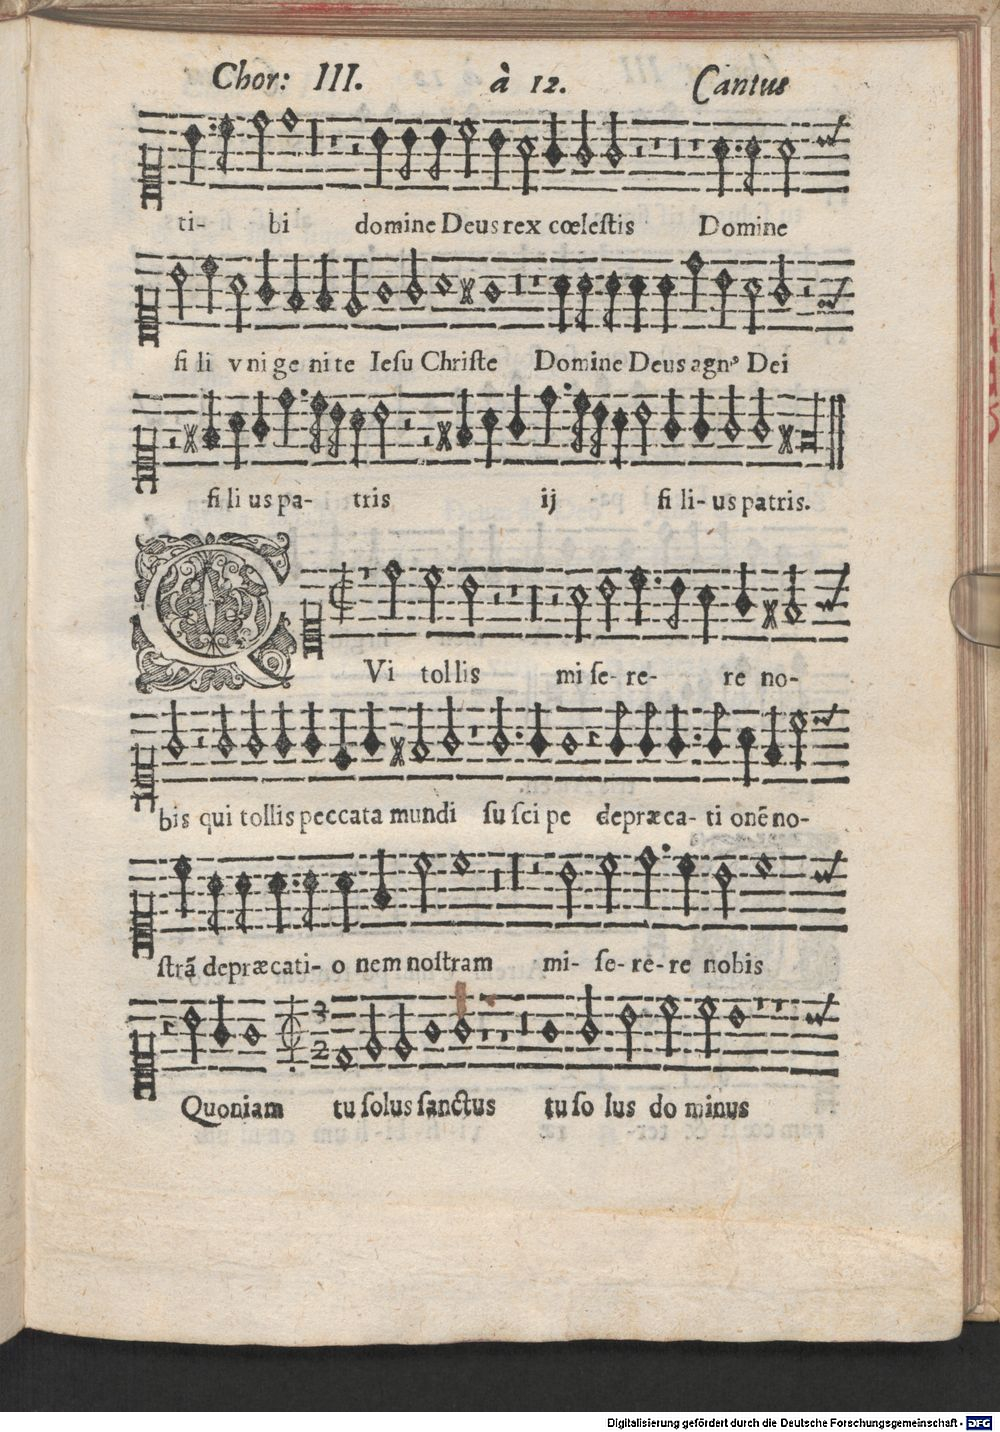 Chor: III. à 12. Cantus
ti- bi domine Deus rex cœleſtis Domine
fi li v ni ge ni te Ieſu Chriſte Domine Deus agnꝰ Dei
fi li us pa- tris ij fi li- us patris.
Q Vi tollis mi ſe- re- re no-
bis qui tollis peccata mundi ſu ſci pe depræca- ti onē no-
ſtrā depræcati- o nem noſtram mi- ſe- re- re nobis
3
2
Quoniam tu ſolus ſanctus tu ſo lus do minus
Digitalisierung gefördert durch die Deutsche Forschungsgemeinschaft - DFG